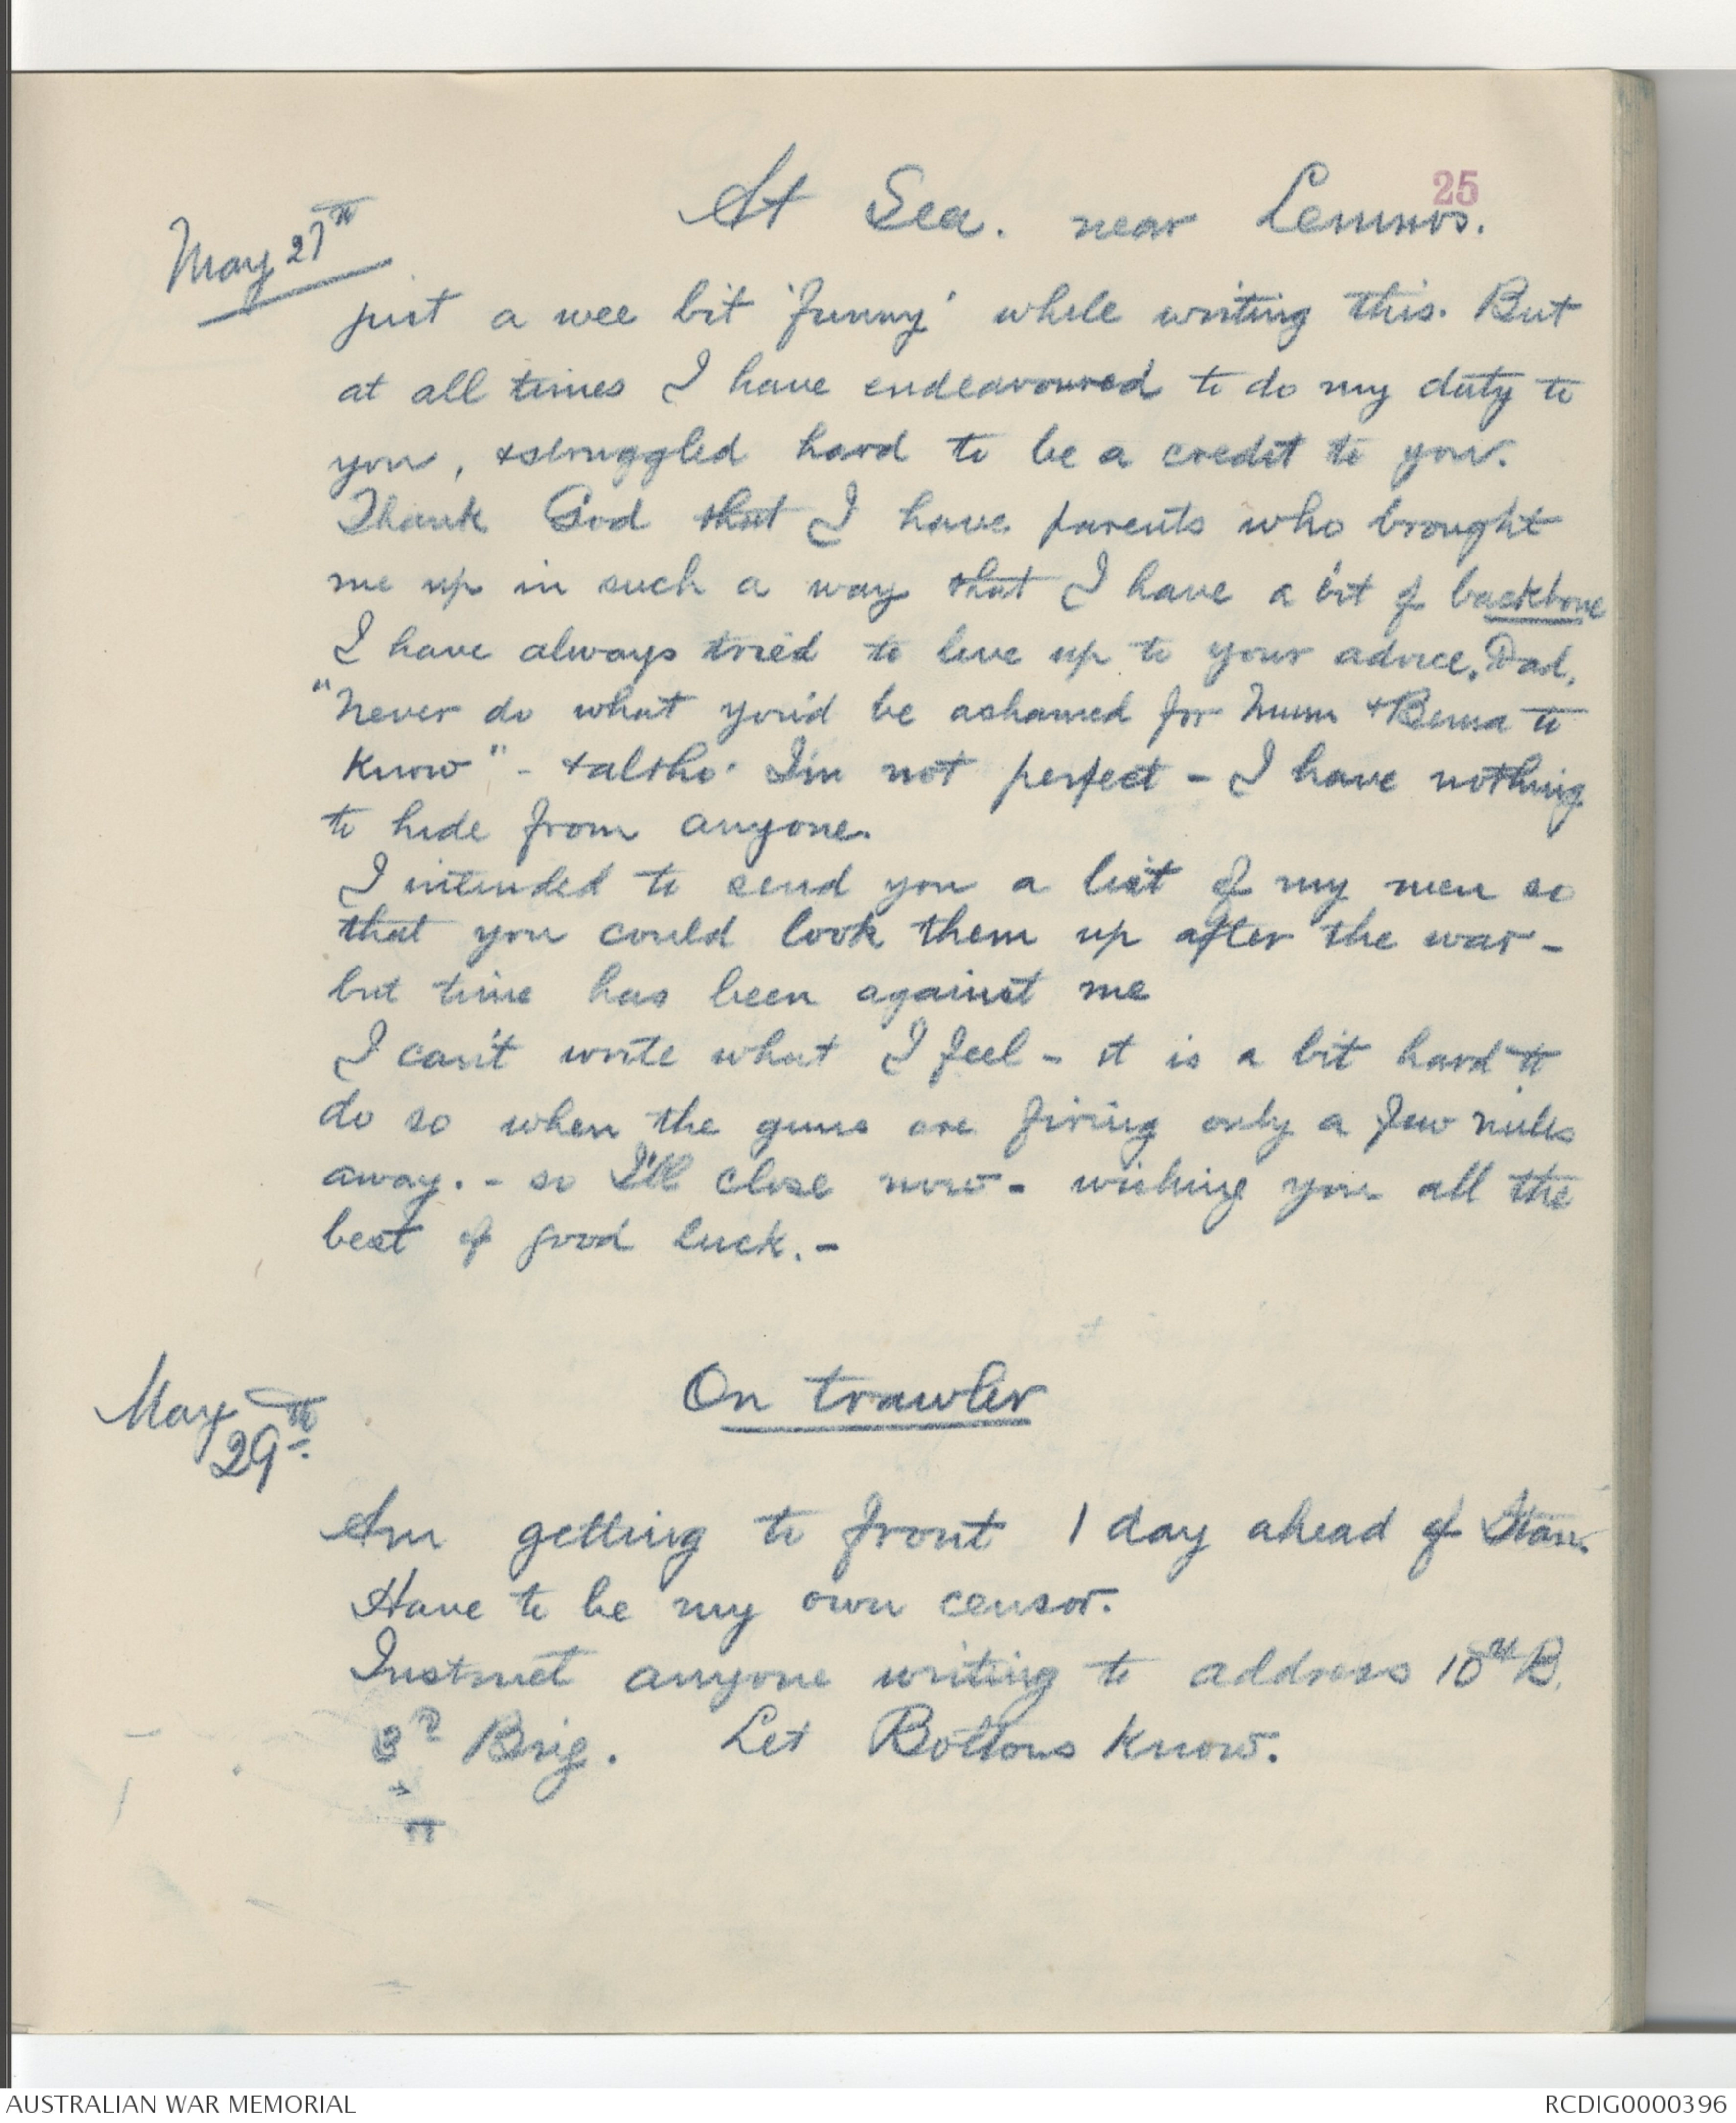 25
At Sea. near Lemnos.
May 27th
just a wee bit 'funny' while writing this. But
at all times I have endeavoured to do my duty to
you, & struggled hard to be a credit to you.
Thank God that I have parents who brought
me up in such a way that I have a bit of backbone
I have always tried to live up to your advice, Dad,
"Never do what you'd be ashamed for Mum & Berna to
know" - & altho' I'm not perfect - I have nothing
to hide from anyone.
I intended to send you a list of my men so
that you could look them up after the war -
but time has been against me
I can't write what I feel - it is a bit hard to
do so when the guns are firing only a few miles
away. - so I'll close now - wishing you all the
best of good luck. -
On trawler
May 29th
Am getting to front 1 day ahead of Stan.
Have to be my own censor.
Instruct anyone writing to address 10th B.
3rd Brig. Let Bottoms know.
AUSTRALIAN WAR MEMORIAL
RCDIG0000396